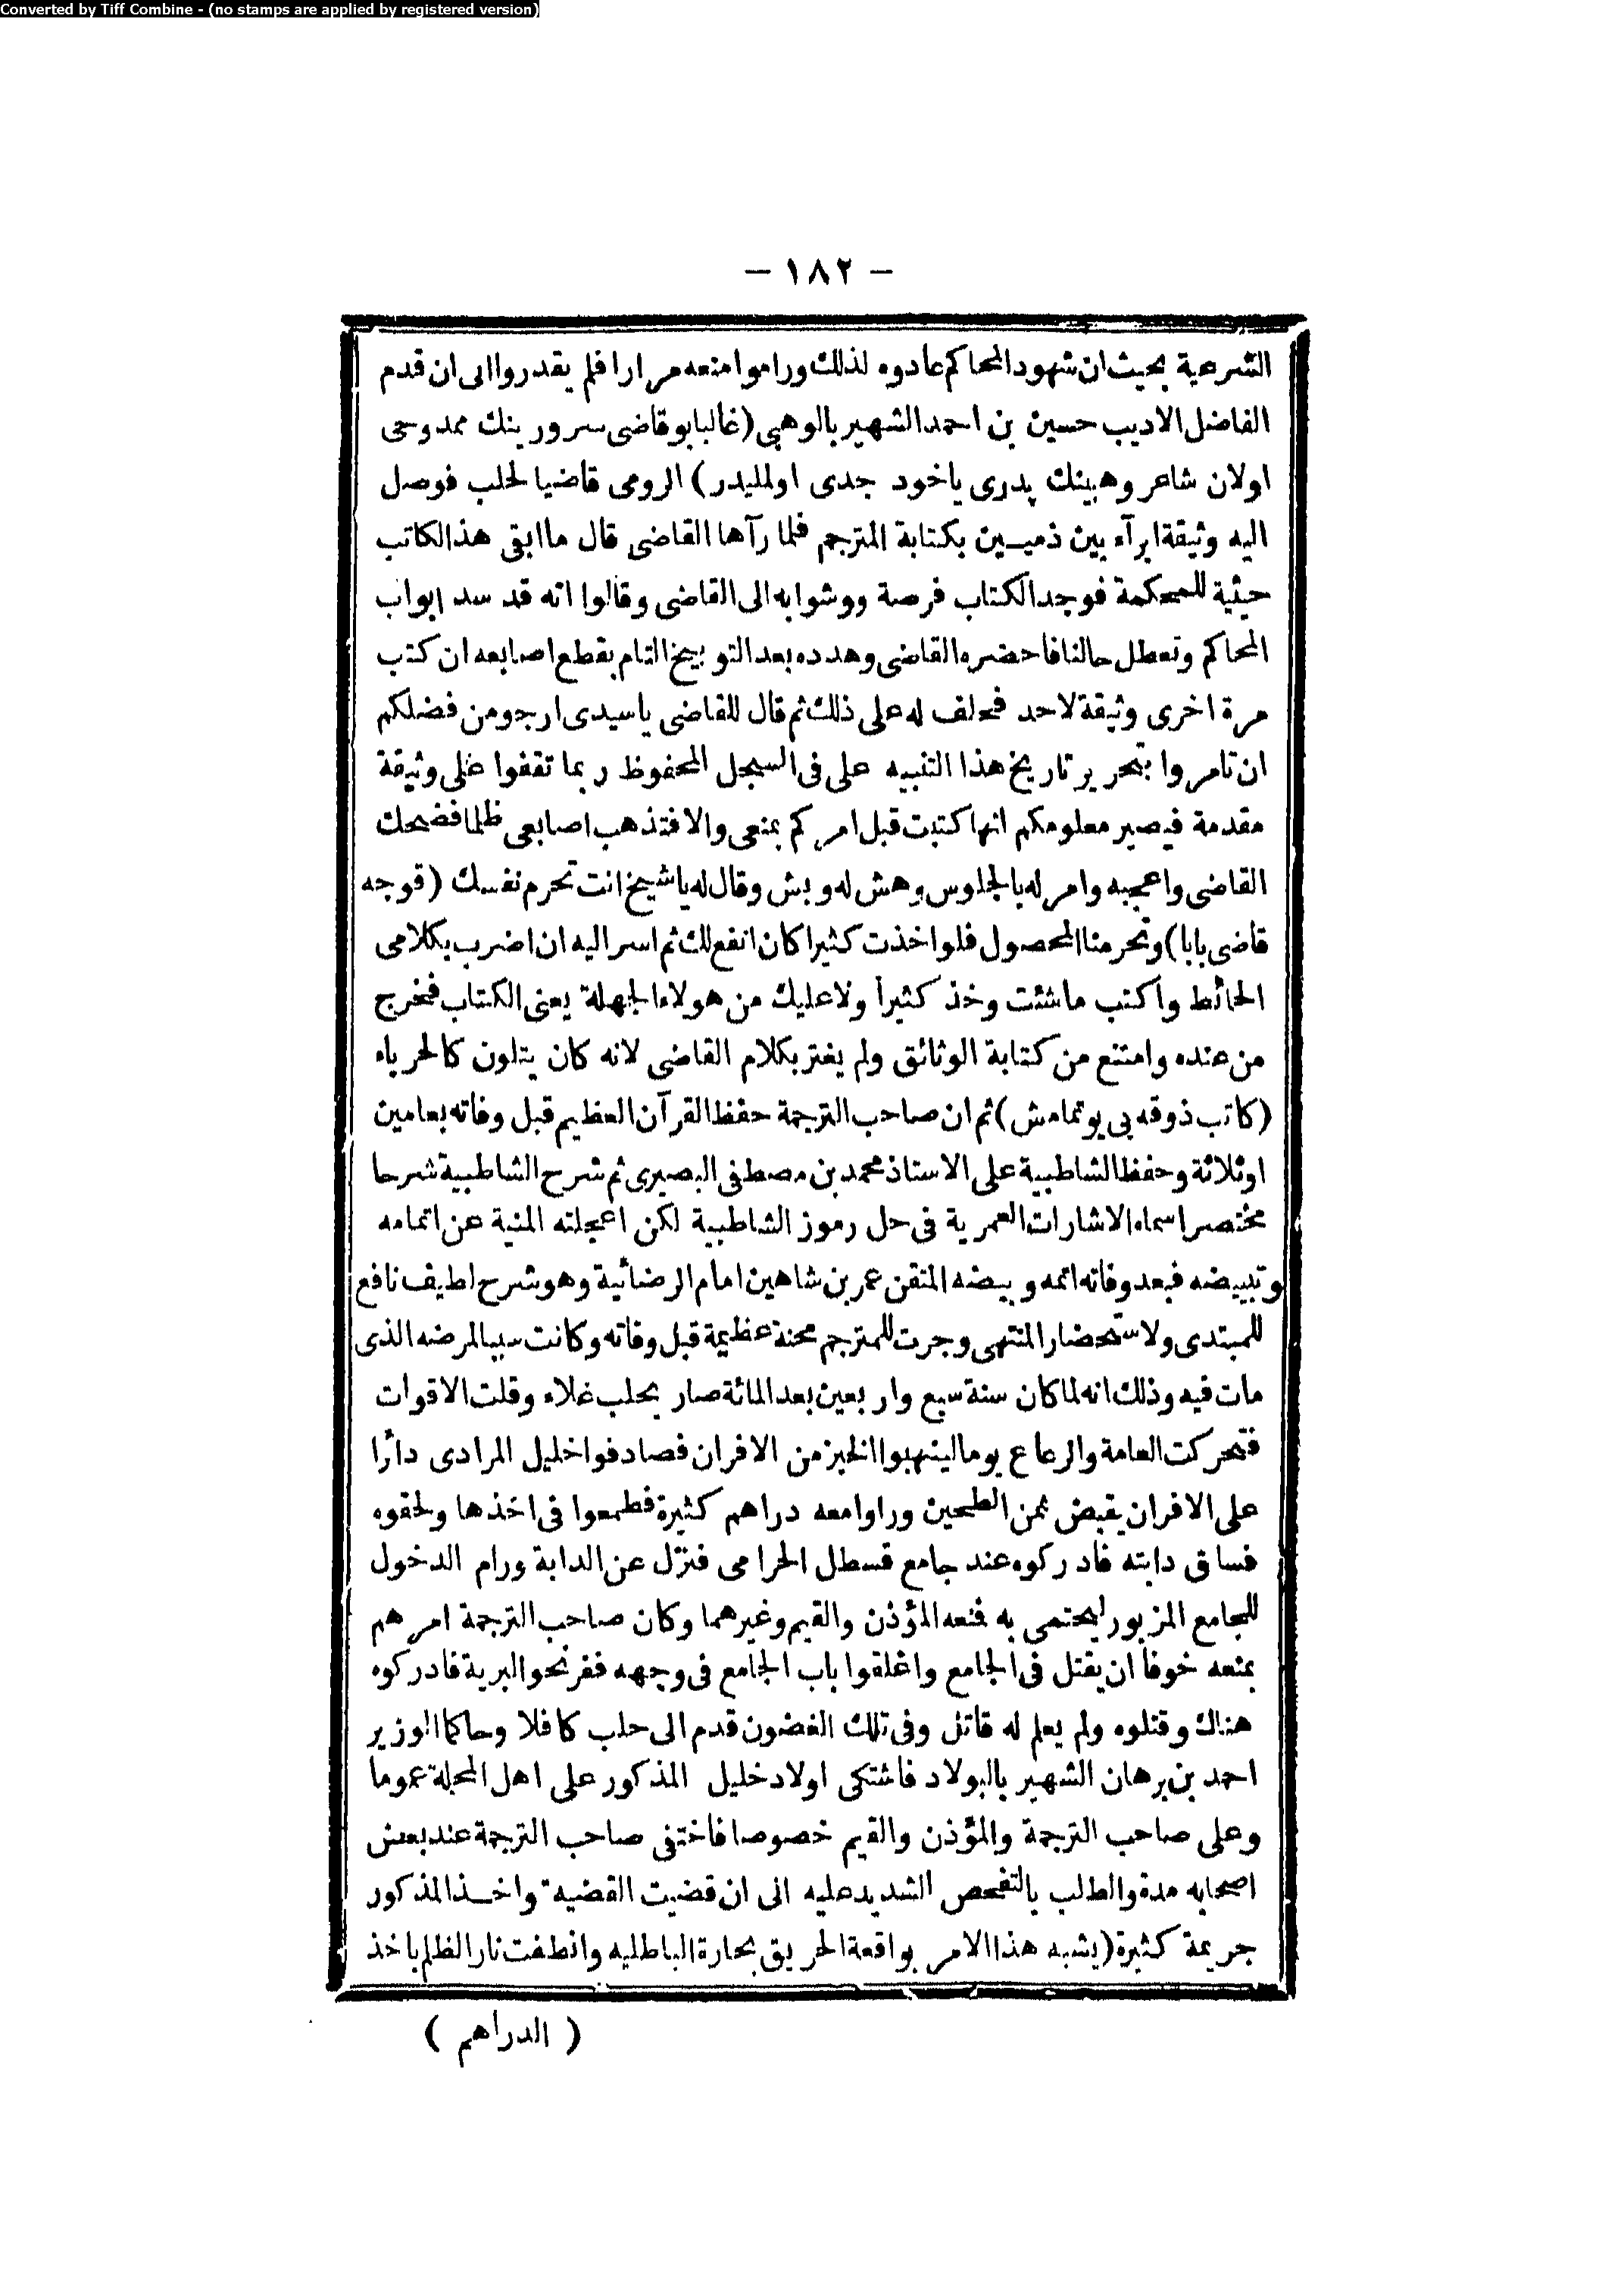 Converted by Tiff Combine - (no stamps are applied by registered version)
– ١٨٢ –
الشرعية بحيث ان شهود المحاكم عادوه لذلك وراموا منعه مرارا فلم يقدروا الى ان قدم
الفاضل الاديب حسين بن احمد الشهير بالوهبى (غالبا بو قاضى سرورينك ممدوحى
اولان شاعر وهبينك پدرى ياخود جدى اولمليدر) الرومى قاضيا لحلب فوصل
اليه وثيقة ابرآء بين ذميين بكتابة المترجم فلما رآها القاضى قال ما ابقى هذا الكاتب
حيثية للمحكمة فوجد الكتاب فرصة ووشوا به الى القاضى وقالوا انه قد سد ابواب
المحاكم وتعطل حالنا فاحضره القاضى وهدده بعد التوبيخ التام بقطع اصابعه ان كتب
مرة اخرى وثيقة لاحد فحلف له على ذلك ثم قال للقاضى يا سيدى ارجو من فضلكم
ان تامروا بتحرير تاريخ هذا التنبيه على فى السجل المحفوظ ربما تقفوا على وثيقة
مقدمة فيصير معلومكم انها كتبت قبل امركم بمنعى والا فتذهب اصابعى ظلما فضحك
القاضى واعجبه وامر له بالجلوس وهش له وبش وقال له يا شيخ انت تحرم نفسك (قوجه
قاضى بابا) وتحرمنا المحصول فلو اخذت كثيرا كان انفع لك ثم اسر اليه ان اضرب بكلامى
الحائط واكتب ما شئت وخذ كثيراً ولا عليك من هولاء الجهلة يعنى الكتاب فخرج
من عنده وامتنع من كتابة الوثائق ولم يغتر بكلام القاضى لانه كان يتلون كالحرباء
(كاتب ذوقه بى يوتمامش) ثم ان صاحب الترجمة حفظ القرآن العظيم قبل وفاته بعامين
او ثلاثة وحفظ الشاطبية على الاستاذ محمد بن مصطفى البصيرى ثم شرح الشاطبية شرحا
مختصرا سماه الاشارات العمرية فى حل رموز الشاطبية لكن اعجلته المنية عن اتمامه
وتبييضه فبعد وفاته اتمه وبيضه المتقن عمر بن شاهين امام الرضائية وهو شرح لطيف نافع
للمبتدى ولاستحضار المنتهى وجرت للمترجم محنة عظيمة قبل وفاته وكانت سببا لمرضه الذى
مات فيه وذلك انه لما كان سنة سبع واربعين بعد المائة صار بحلب غلاء وقلت الاقوات
فتحركت العامة والرعاع يوما لينهبوا الخبز من الافران فصادفوا خليل المرادى دائرا
على الافران يقبض ثمن الطحين وراوا معه دراهم كثيرة فطمعوا فى اخذها ولحقوه
فساق دابته فادركوه عند جامع قسطل الحرامى فنزل عن الدابة ورام الدخول
للجامع المزبور ليحتمى به فمنعه المؤذن والقيم وغيرهما وكان صاحب الترجمة امرهم
بمنعه خوفا ان يقتل فى الجامع واغلقوا باب الجامع فى وجهه ففر نحو البرية فادركوه
هناك وقتلوه ولم يعلم له قاتل وفى تلك الغضون قدم الى حلب كافلا وحاكما الوزير
احمد بن برهان الشهير بالبولاد فاشتكى اولاد خليل المذكور على اهل المحلة عموما
وعلى صاحب الترجمة والمؤذن والقيم خصوصا فاختفى صاحب الترجمة عند بعض
اصحابه مدة والطلب بالتفحص الشديد عليه الى ان قضيت القضيه واخذ المذكور
جريمة كثيرة (يشبه هذا الامر بواقعة الحريق بحارة الباطليه وانطفت نار الظلم باخذ
( الدراهم )